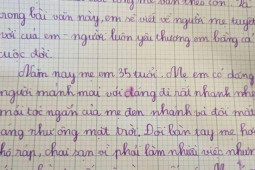 theo con. Và
trong bài văn này, em sẽ viết về người mẹ tuyệt
vời của em - người luôn yêu thương em bằng cả
cuộc đời.
Năm nay mẹ em 35 tuổi. Mẹ em có dáng
người mảnh mai với dáng đi rất nhanh nhẹ
mái tóc ngắn của mẹ đen nhánh và đôi mắt
sáng như ông mặt trời. Đôi bàn tay mẹ hơ
thô ráp, chai sạn vì phải làm nhiều việc nhưn